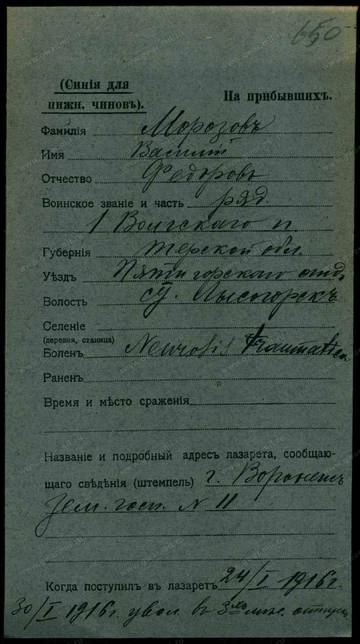 650
(Синія для
нижн. чиновъ).
На прибывшихъ.
Фамилія Морозовъ
Имя Василій
Отчество Федоровъ
Воинское званіе и часть ряд.
1 Волгскаго п.
Губернія Терской обл.
Уѣздъ Пятигорскаго отд.
Волость ст. Лысогорскъ
Селеніе
(деревня, станица)
Боленъ Neurosis traumatica
Раненъ
Время и мѣсто сраженія
Названіе и подробный адресъ лазарета, сообщаю-
щаго свѣдѣнія (штемпель) г. Воронежъ
Зем. госп. N 11
Когда поступилъ въ лазаретъ 24/I 1916г.
30/I 1916г. увол. въ 3хъ мѣс. отпускъ